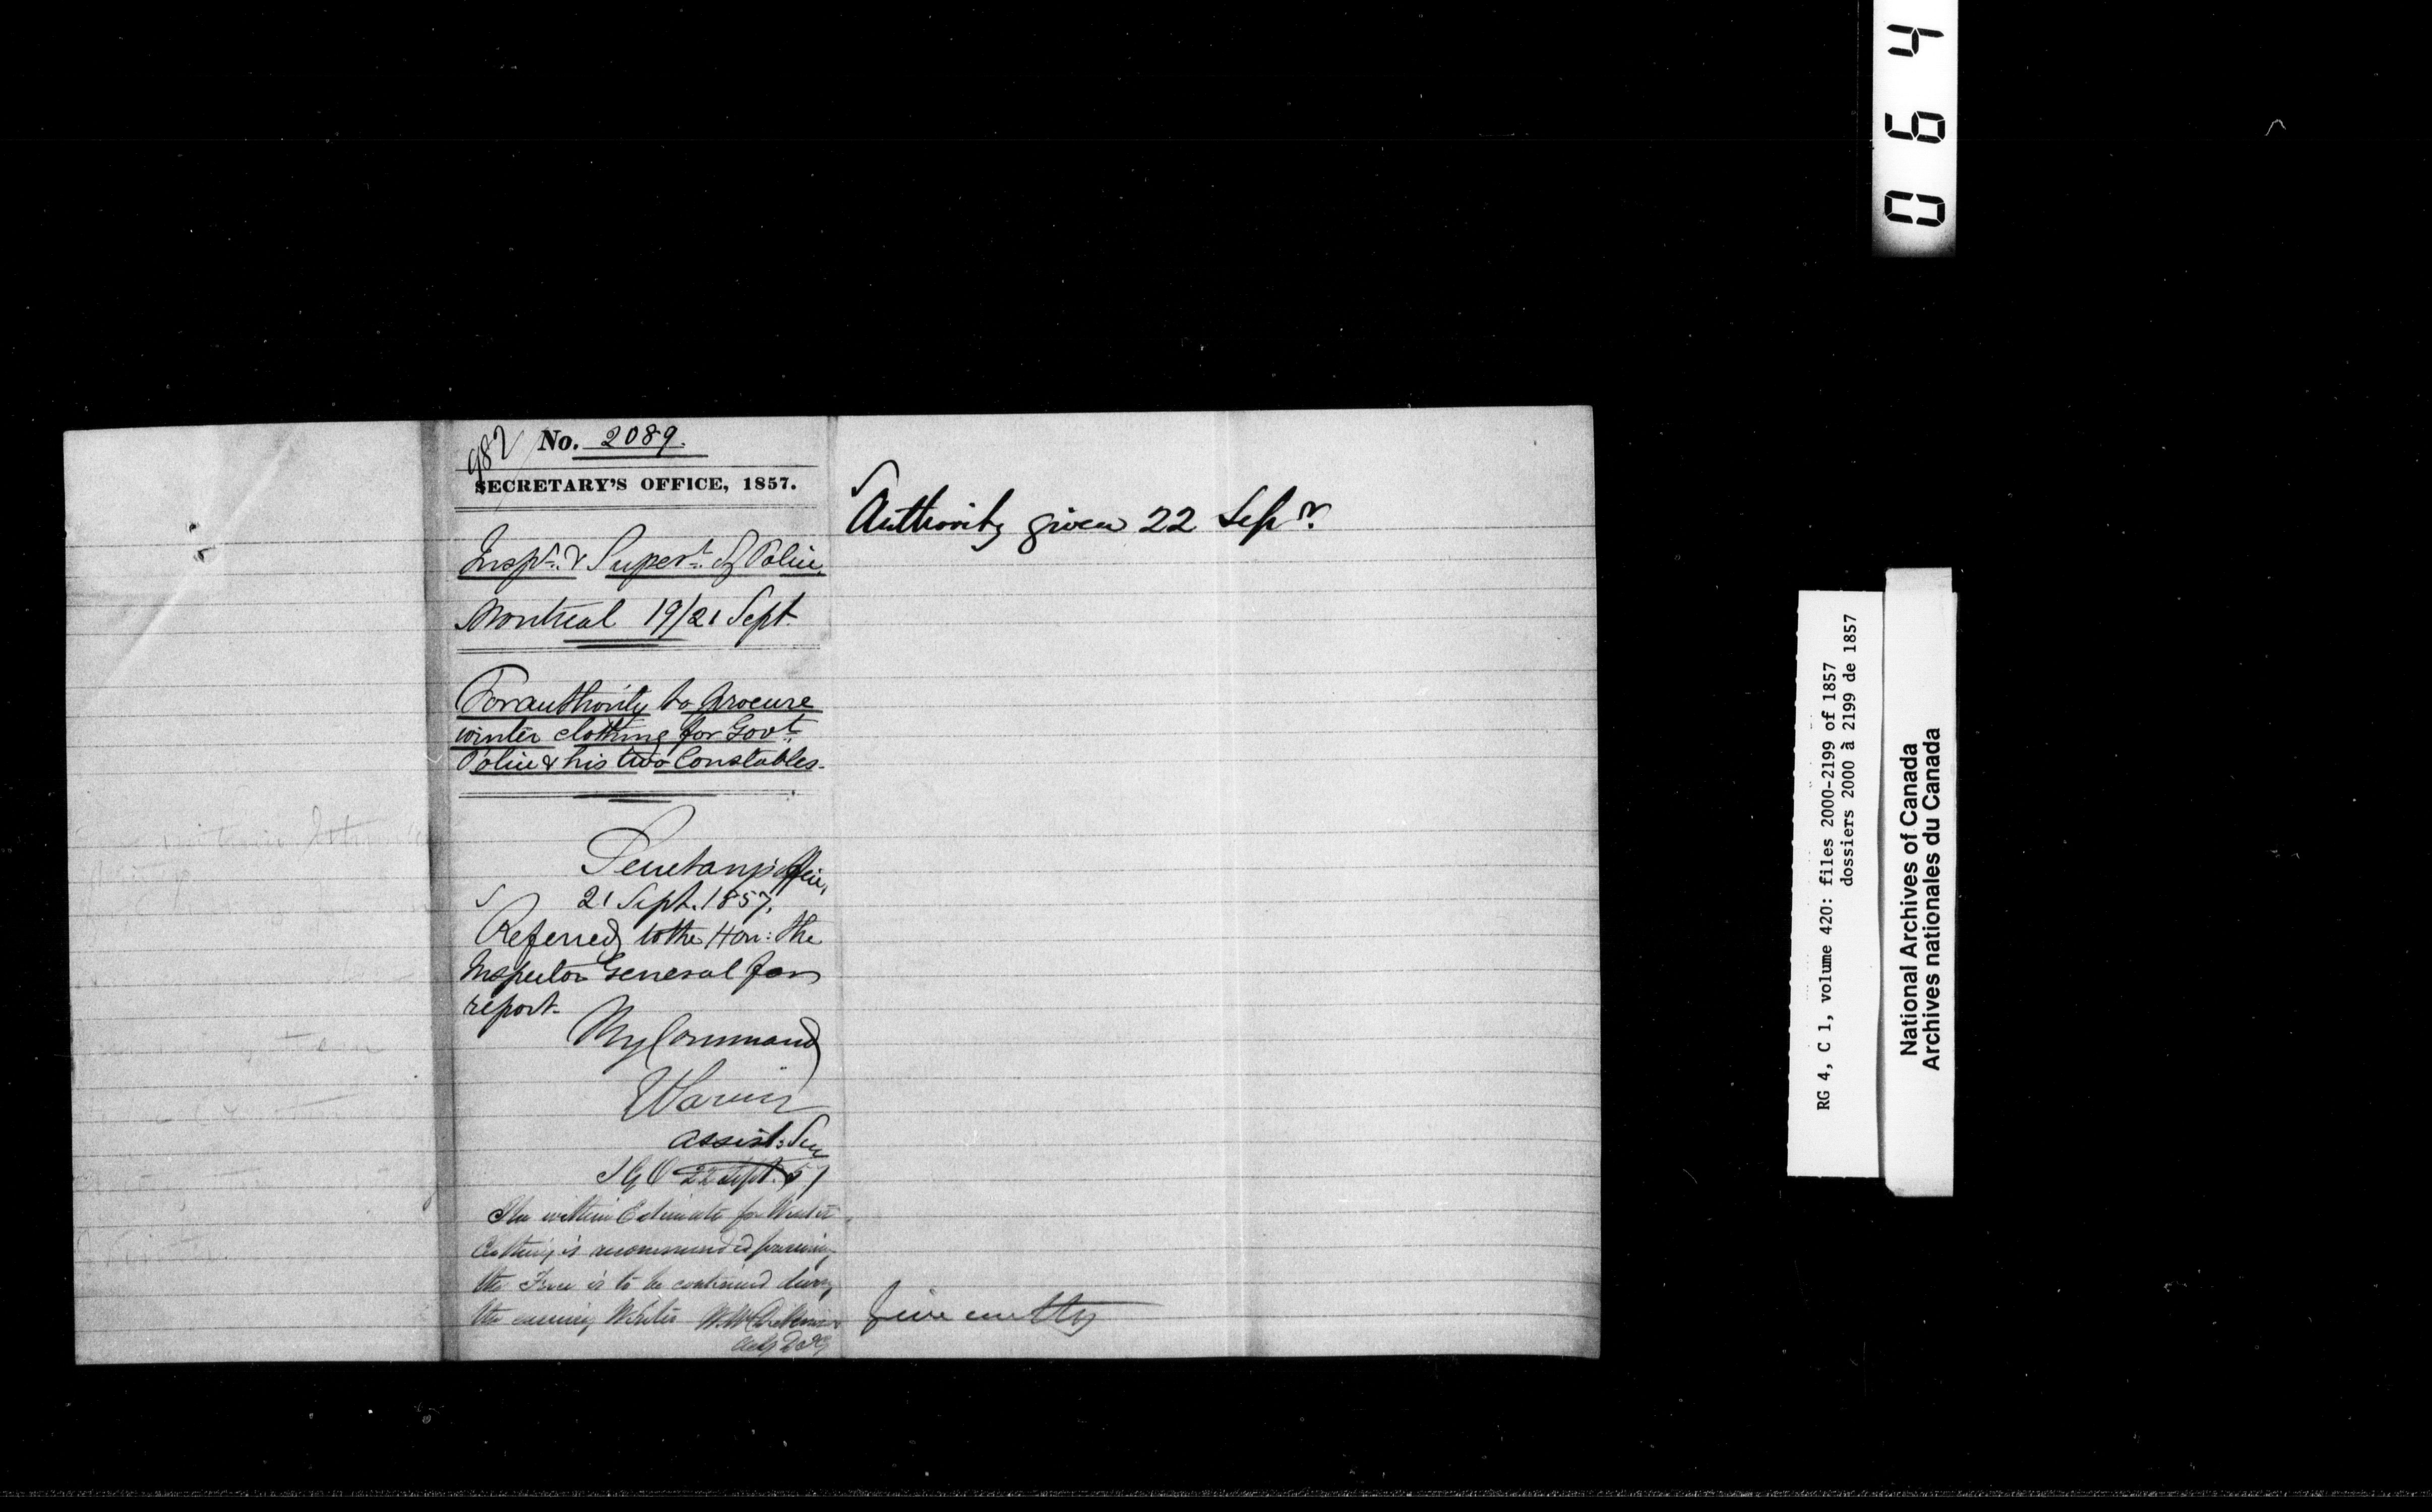 982
No. 2089.
SECRETARY'S OFFICE, 1857.
Inspr. & Supert. of Police
Montreal 19/21 Sept.
For authority to procure
winter clothing for Govt.
Police & his two Constables.
21 Sept. 1857,
Referred to the Hon: the
Inspector General for
report.
By Command
Assist: Sec
I G O 22 Sept. 57
The within Estimate for Winter
Clothing is recommended
the Force is to be continued during
the ensuing Winter
Authority given 22 Sepr.
Give
064
RG 4, C 1, volume 420: files 2000-2199 of 1857
dossiers 2000 à 2199 de 1857
National Archives of Canada
Archives nationales du Canada